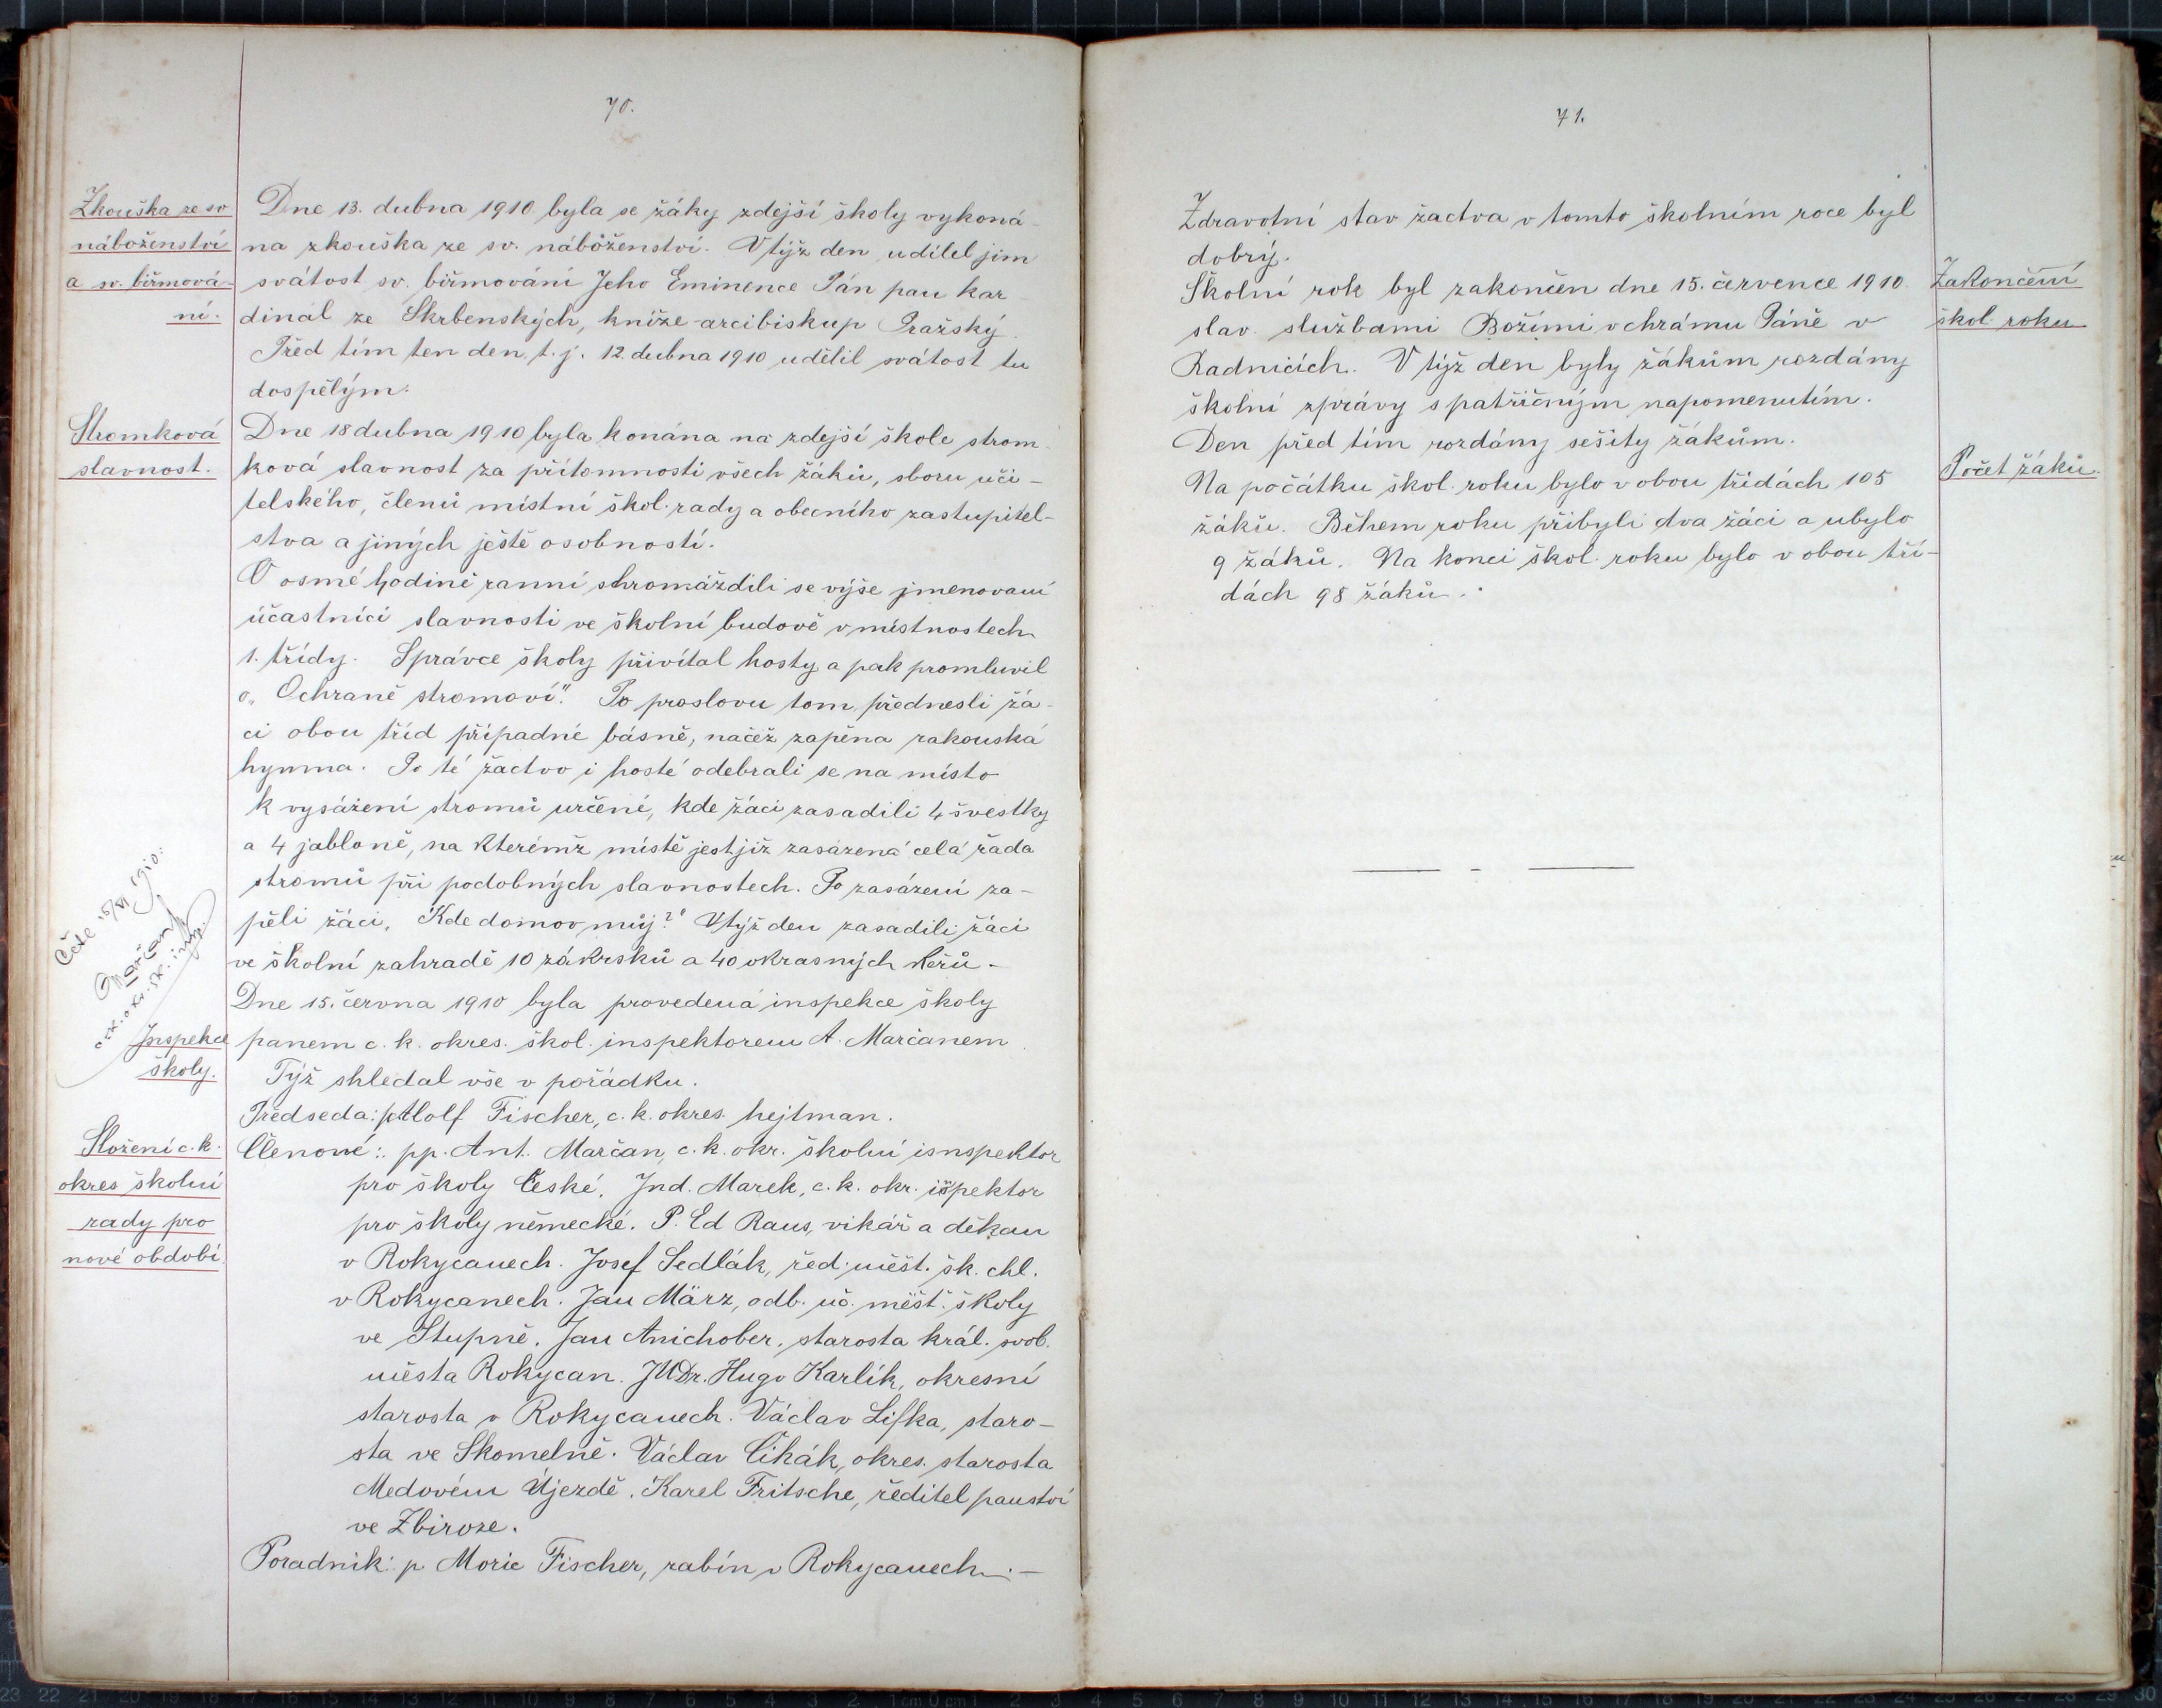 70.
Zkouška ze sv
náboženství
a sv. biřmová-
ní.
Dne 13. dubna 1910 byla se žáky zdejší školy vykoná
na zkouška ze sv. náboženství. Vtýž den udílel jim
svátost sv. biřmování Jeho Eminence Pán pan kar
dinál ze Skrbenských, kníže-arcibiskup Pražský
Před tím ten den, t. j. 12. dubna 1910 udělil svátost tu
dospělým.
Stromková
slavnost.
Dne 18 dubna 1910 byla konána na zdejší škole strom
ková slavnost za přítomnosti všech žáků, sboru uči-
telského, členů místní škol. rady a obecního zastupitel-
stva a jiných ještě osobností.
V osmé hodině ranní shromáždili se výše jmenovaní
účastníci slavnosti ve školní budově v místnostech
1. třídy. Správce školy přivítal hosty a pak promluvil
o „Ochraně stromoví." Po proslovu tom přednesli žá-
ci obou tříd případné básně, načež zapěna rakouská
hymna. Po té žactvo i hosté odebrali se na místo
k vysázení stromů určené, kde žáci zasadili 4 švestky
a 4 jabloně, na kterémž místě jest již zasázená celá řada
stromů při podobných slavnostech. Po zasázení za-
pěli žáci, Kde domov můj?" Vtýž den zasadili žáci
ve školní zahradě 10 zákrsků a 40 okrasných keřů.-
Čete 15/VI 1910.
Marčan
c. k. okr. šk. insp.
Inspekce
školy.
Dne 15. června 1910 byla provedená inspekce školy
panem c. k. okres. škol. inspektorem A. Marčanem.
Týž shledal vše v pořádku.
Složení c. k.
okres školní
rady pro
nové období.
Předseda: p Adolf Fischer, c. k. okres. hejtman.
Členové: pp. Ant. Marčan, c. k. okr. školní isnspektor
pro školy české. Jnd. Marek, c. k. okr. išpektor
pro školy německé. P. Ed Raus, vikář a děkan
v Rokycanech. Josef Sedlák, řed. měšt. šk. chl.
v Rokycanech. Jan März, odb. uč. měšť. školy
ve Stupně. Jan Anichober, starosta král. svob.
města Rokycan. JUDr. Hugo Karlík, okresní
starosta v Rokycanech. Václav Liška, staro-
sta ve Skomelně. Václav Cikák, okres. starosta
Medovém Újezdě. Karel Fritsche, ředitel panství
ve Zbiroze.
Poradník: p Moric Fischer, rabín v Rokycanech.-
71.
Zdravotní stav žactva v tomto školním roce byl
dobrý.
Zakončení
škol. roku
Školní rok byl zakončen dne 15. července 1910
slav. službami Božími v chrámu Páně v
Radnicích. V týž den byly žákům rozdány
školní zprávy s patřičným napomenutím.
Den před tím rozdány sešity žákům.
Počet žáků.
Na počátku škol. roku bylo v obou třídách 105
žáků. Během roku přibyli dva žáci a ubylo
9 žáků. Na konci škol. roku bylo v obou tří-
dách 98 žáků.